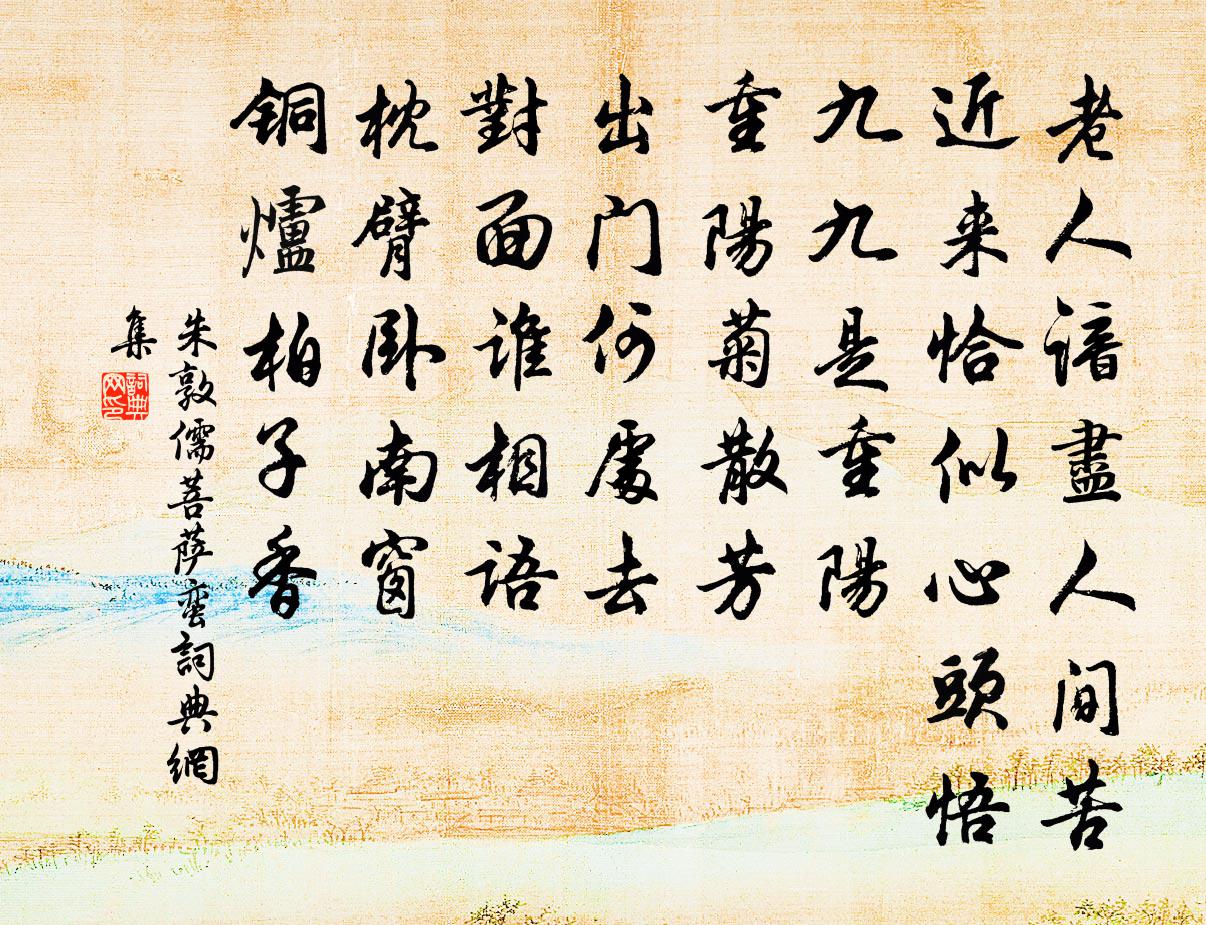 老人谙盡人间苦
近来恰似心頭悟
九九是重陽
重陽菊散芳
出门何處去
對面谁相语
枕臂卧南窗
铜爐柏子香
朱敦儒菩萨蛮詞典網
集
詞典
网印